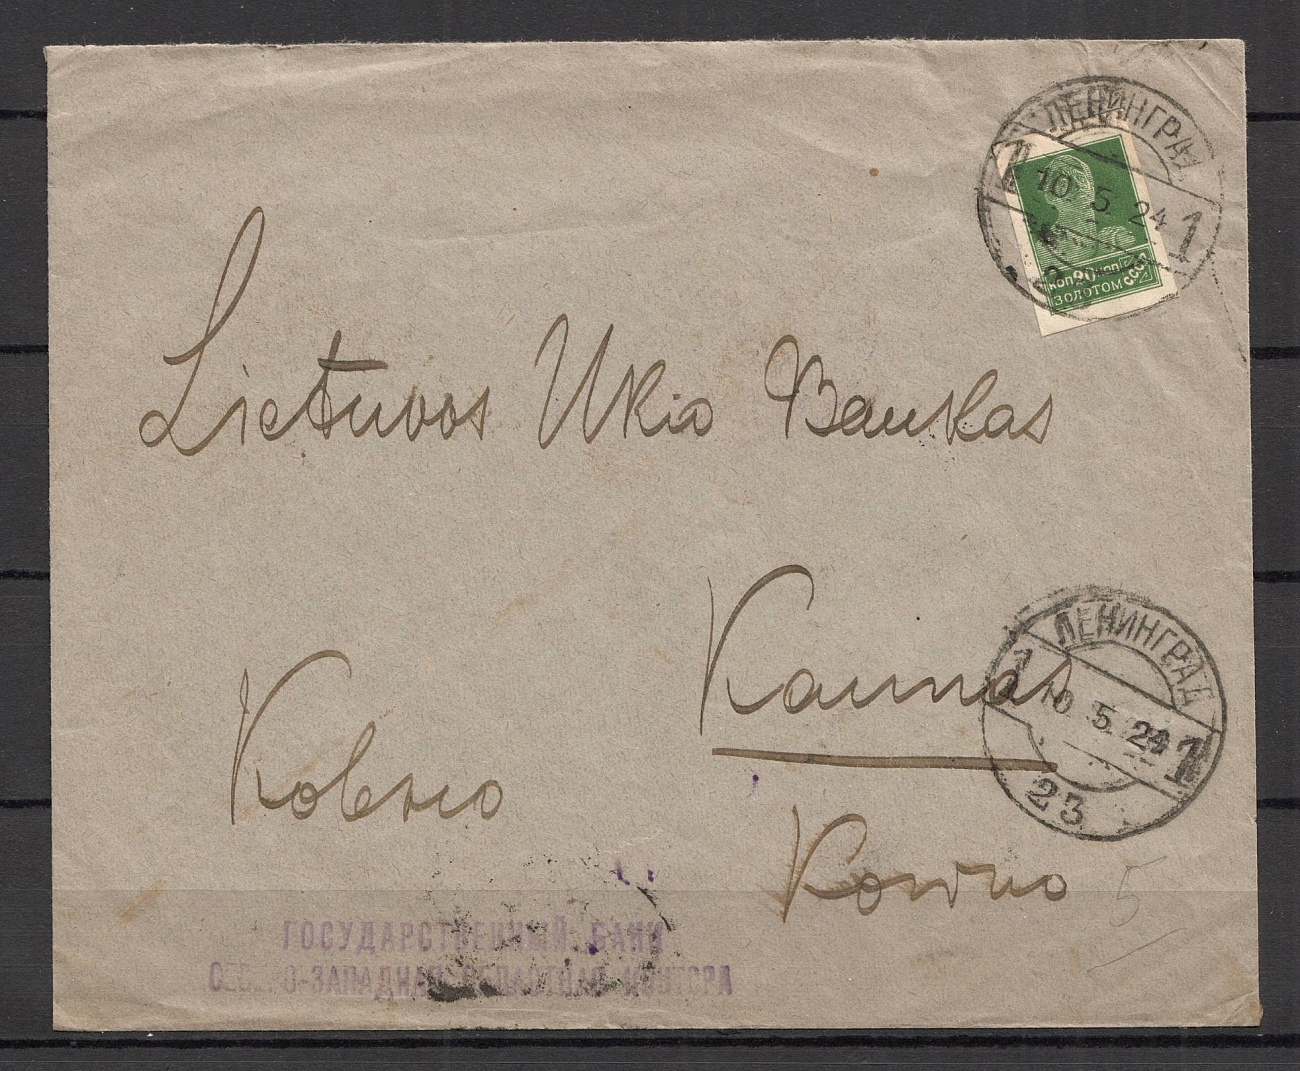 ЛЕНИНГРАД
1 10. 5. 24 1
КОП 20 КОП
ЗОЛОТОМ СССР
Lietuvos Ukio Bankas
Kaunas
ЛЕНИНГРАД
1 10 5. 24 1
23
Ковно
Kowno
5
ГОСУДАРСТВЕННЫЙ БАНК
СЕВЕРО-ЗАПАДНАЯ ОБЛАСТНАЯ КОНТОРА